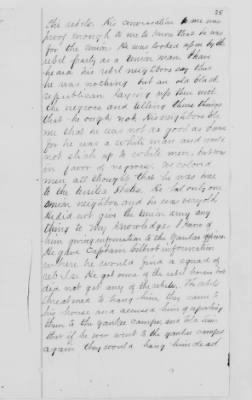 25
The rebels. His conversation to me was
proof enough to me to know that he was
for the union. He was looked upon by the
rebel party as a Union man. I have
heard his rebel neighbors say that
he was nothing but an old black
republican. Laying up thus with
the negroes and telling them things
that he ought not. His neighbors told
me that he was not as good as some
for he was a white man and would
not stick up to white men, but was
in favor of negroes. The colored
men all thought that he was true
to the United States. He had only one
Union neighbor, and he was very old
He did not give the Union army any
thing to my knowledge. I know of
him giving information to the Yankee officers
He gave Captain information
where he could find a squad of
rebels. He got some of the rebel horses but
did not get any of the rebels. The rebels
threatened to hang him, they came to
his house and accused him of reporting
them to the yankee camps, and told him
that if he ever went to the yankee camps
again they would hang him dead